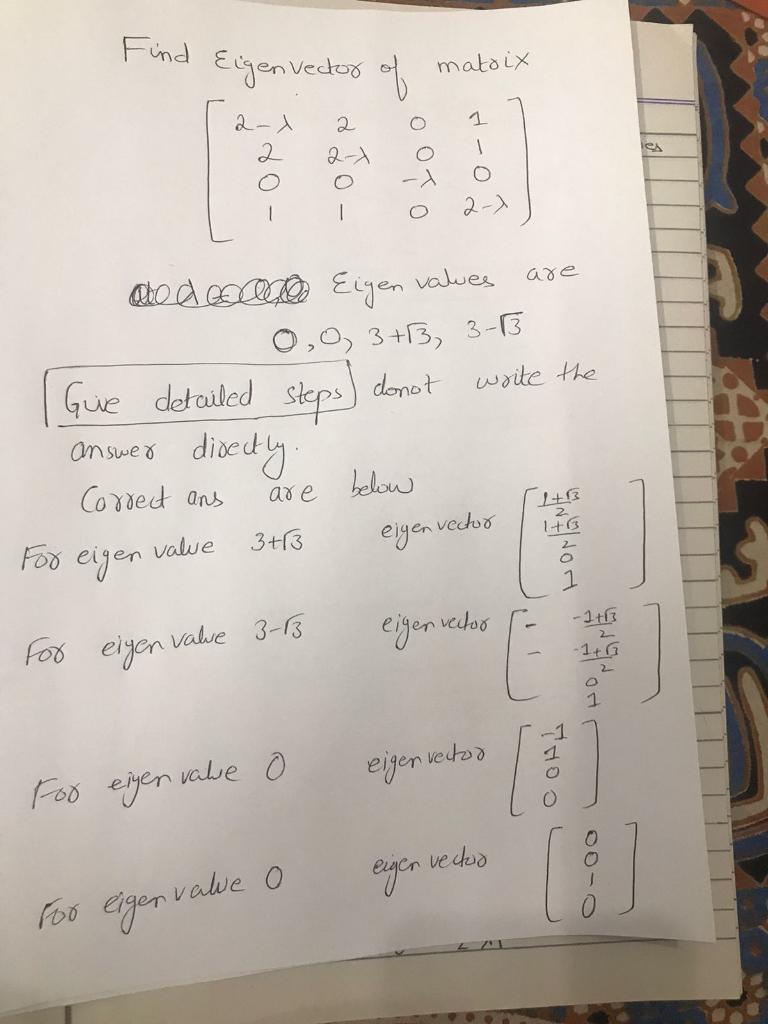 Find Eigenvector of matrix
2-λ 2 0 1
2 2-λ 0 1
0 0 -λ 0
1 1 0 2-λ
Eigen values are
0, 0, 3+√3, 3-√3
Give detailed steps donot write the
answer directly.
Correct ans are below
For eigen value 3+√3 eigen vector
1+√3
2
1+√3
2
0
1
For eigen value 3-√3 eigen vector
- -1+√3
2
- -1+√3
2
0
1
For eigen value 0 eigen vector
-1
1
0
0
For eigen value 0 eigen vector
0
0
1
0
es